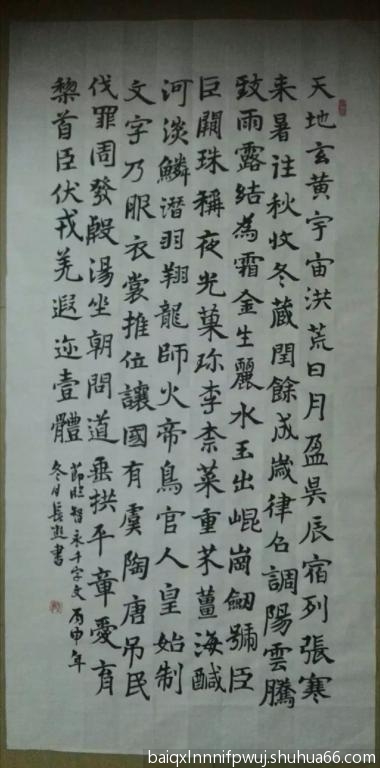 天地玄黄宇宙洪荒日月盈昃辰宿列張寒
来暑往秋收冬藏閏餘成歲律召調陽雲騰
致雨露結為霜金生麗水玉出崐崗劔號臣
巨闕珠稱夜光菓珍李柰菜重芥薑海鹹
河淡鱗潛羽翔龍師火帝鳥官人皇始制
文字乃服衣裳推位讓國有虞陶唐吊民
伐罪周發殷湯坐朝問道垂拱平章愛育
黎首臣伏戎羌遐迩壹體
節臨智永千字文丙申年
冬月長書
baiqxlnnnifpwuj.shuhua66.com